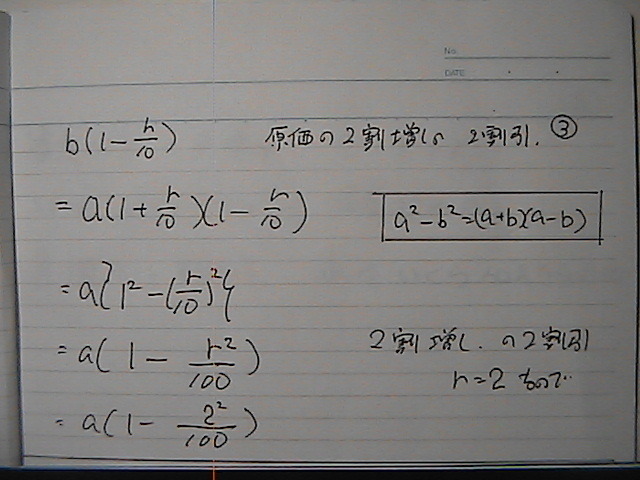 No.
DATE
b(1-r/10) 原価の2割増しの2割引. ③
=a(1+r/10)(1-r/10)
a²-b²=(a+b)(a-b)
=a{1²-(r/10)²}
=a(1-r²/100)
2割増し.の2割引
r=2なので
=a(1-2²/100)